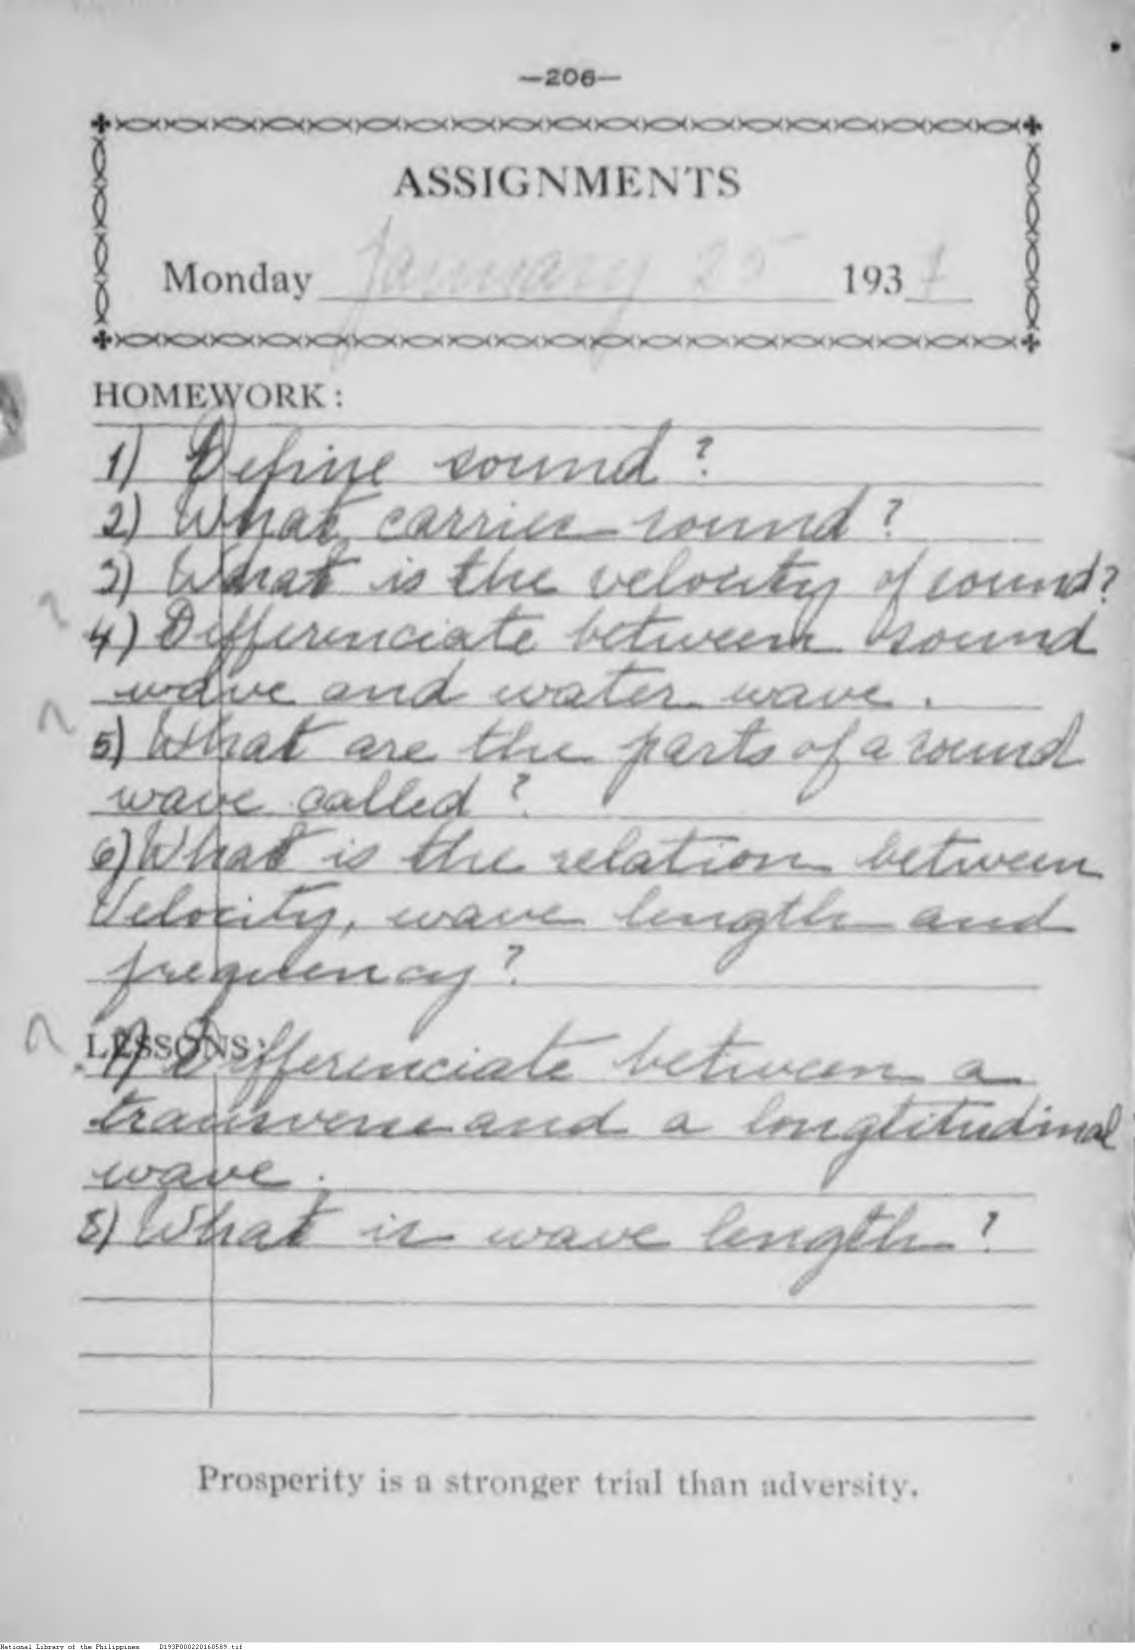 —206—
ASSIGNMENTS
Monday January 25 1937
HOMEWORK:
1) Define sound?
2) What carries sound?
3) What is the velocity of sound?
4) Differenciate between sound
wave and water wave.
5) What are the parts of a sound
wave called?
6) What is the relation between
Velocity, wave length and
frequency?
LESSONS:
7) Differenciate between a
transverse and a longtitudinal
wave.
8) What is wave length?
Prosperity is a stronger trial than adversity.
National Library of the Philippines D193P000220160589.tif